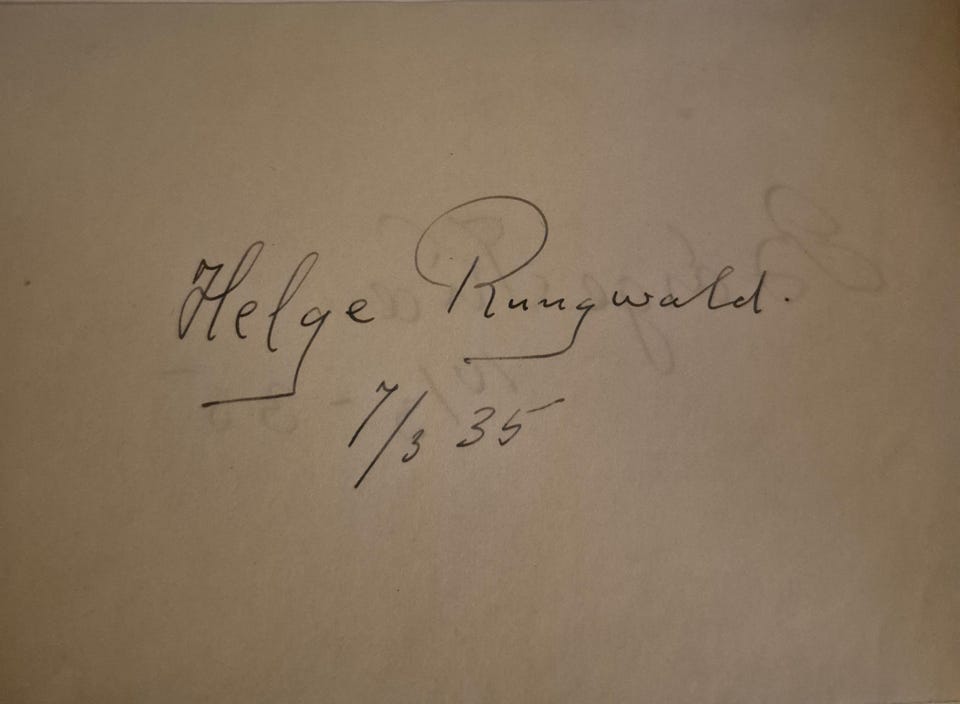 Helge Rungwald.
7/3 35